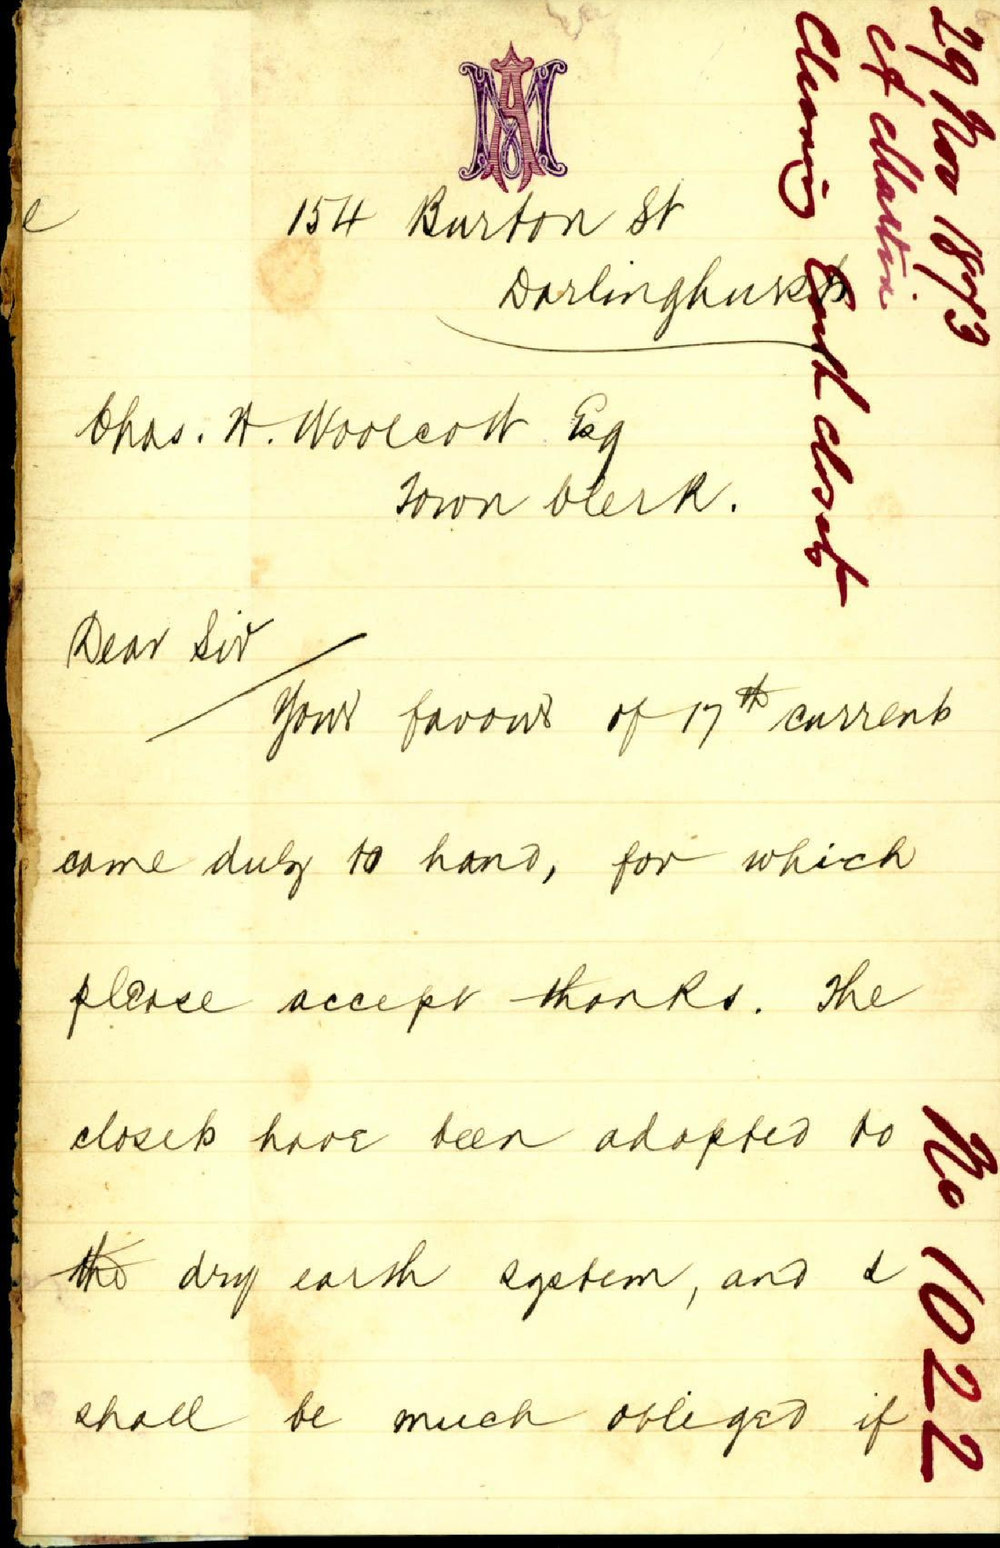 154 Burton St
Darlinghurst
Chas. H. Woolcott Esq
Town Clerk.
Dear Sir
Your favour of 17th current
came duly to hand, for which
please accept thanks. The
closets have been adapted to
the dry earth system, and I
shall be much obliged if
29 Nov 1873
A Martin
Cleaning Earth closet
No 1022